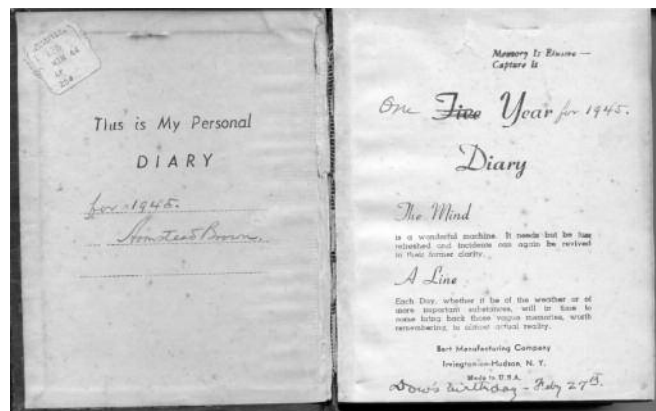 This is My Personal
DIARY
for 1945.
Brown.
Memory Is Elusive —
Capture It
One Five Year for 1945.
Diary
The Mind
is a wonderful machine. It needs but be
refreshed and incidents can again be revived
in their former clarity.
A Line
Each Day, whether it be of the weather or of
more important substances, will in time to
come bring back those vague memories, worth
remembering, to almost actual reality.
Manufacturing Company
Irvington-on-Hudson, N. Y.
Made in U.S.A.
Dow's birthday - Feby 27th.